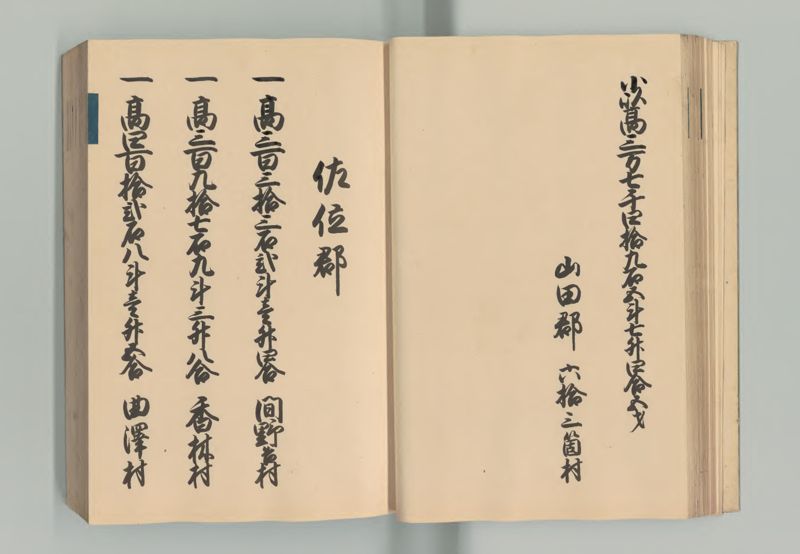 小以高三万七千四拾九石五斗七升四合五才
山田郡 六拾三箇村
佐位郡
一 高三百三拾三石弐斗壱升四合 間野谷村
一 高三百九拾七石九斗三升八合 香林村
一 高四百拾弐石八斗壱升五合 曲澤村